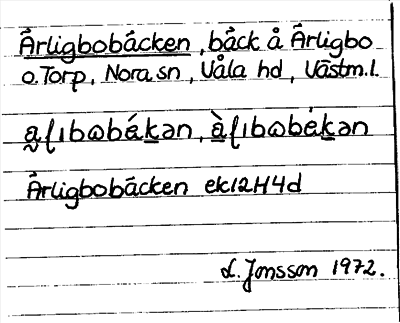 Ärligbobäcken, bäck å Ärligbo
o. Torp, Nora sn, Våla hd, Västm.l.
a̰ʃıbɷbék̲ən, à̲ʃıbɷbék̲ən
Ärligbobäcken ek12H4d
L. Jonsson 1972.